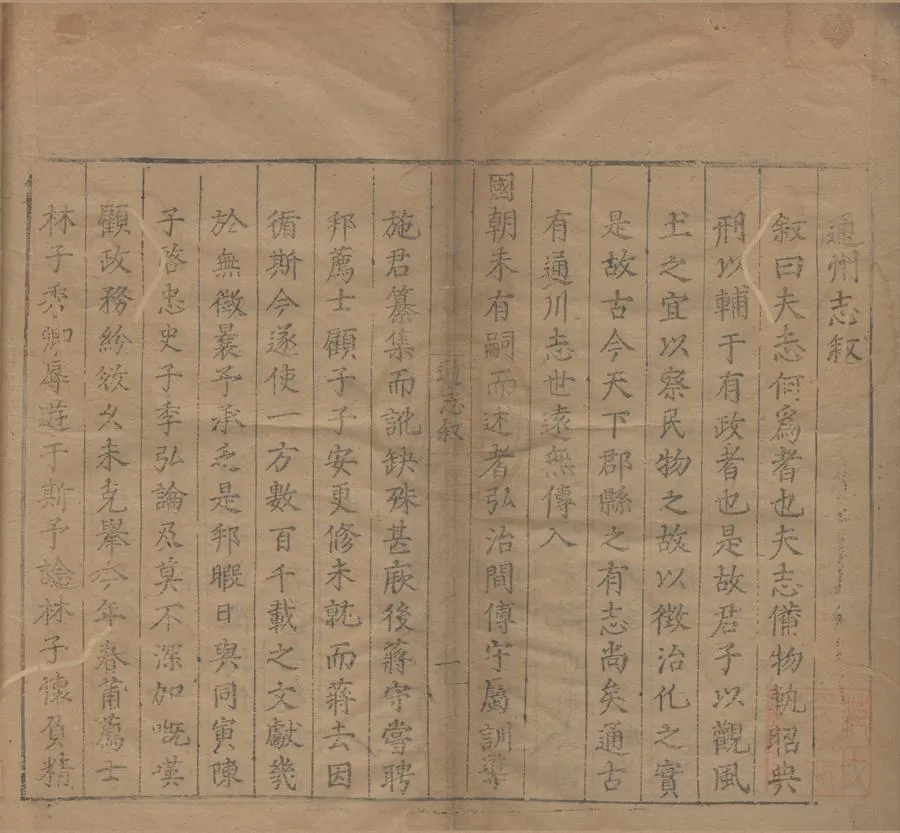 通州志叙
叙曰夫志何爲者也夫志備物執昭典
刑以輔于有政者也是故君子以觀風
土之宜以察民物之故以徵治化之實
是故古今天下郡縣之有志尚矣通古
有通川志世遠無傳入
國朝未有嗣而述者弘治間傅守屬訓導
通志叙
一
施君纂集而訛缺殊甚厥後蔣守嘗聘
邦薦士顧子子安更修未就而蔣去因
循斯今遂使一方數百千載之文獻幾
於無徵曩予承乏是邦暇日與同寅陳
子啓忠史子季弘論及莫不深加嘅嘆
顧政務紛欻久未克舉今年春莆薦士
林子秀卿辱遊于斯予諗林子懷負精